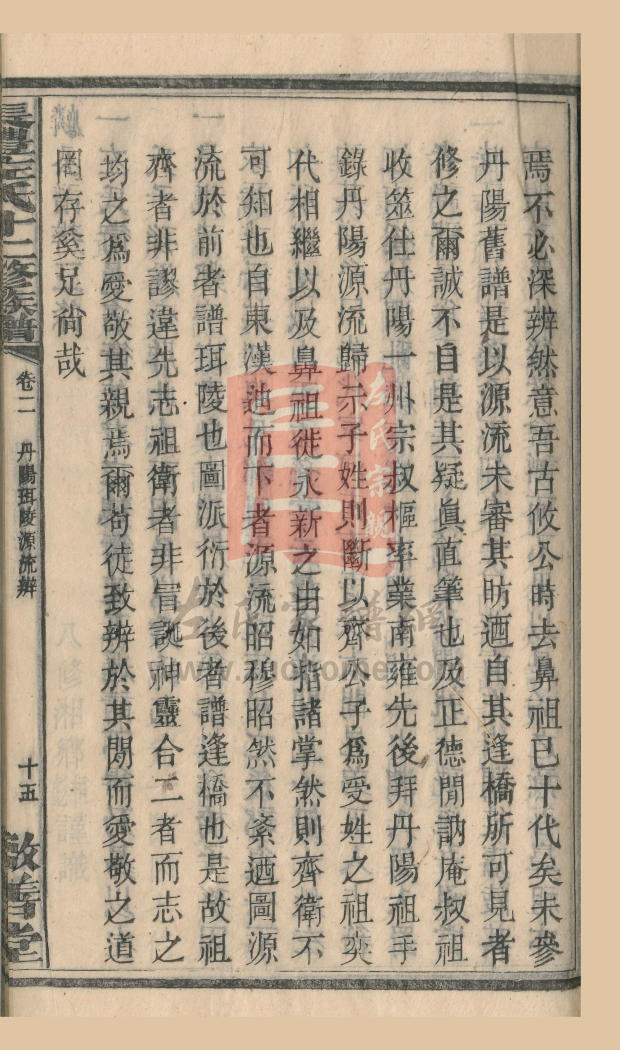 焉不必深辨然意吾古攸公時去鼻祖已十代矣未參
丹陽舊譜是以源流未審其昉迺自其逢橋所可見者
修之爾誠不自是其疑眞直筆也及正德閒訥庵叔祖
收筮仕丹陽一州宗叔樞率業南雍先後拜丹陽祖手
錄丹陽源流歸示子姓則斷以齊公子爲受姓之祖奕
代相繼以及鼻祖徙永新之由如指諸掌然則齊衛不
可知也自東漢迆而下者源流昭穆昭然不紊迺圖源
流於前者譜珥陵也圖派衍於後者譜逢橋也是故祖
齊者非謬違先志祖衛者非冒詭神靈合二者而志之
均之爲愛敬其親焉爾苟徒致辨於其閒而愛敬之道
罔存奚足尙哉
左氏十二修族譜
卷二
丹陽珥陵源流辨
十五
敬善堂
左氏宗親
www.zuohome.com